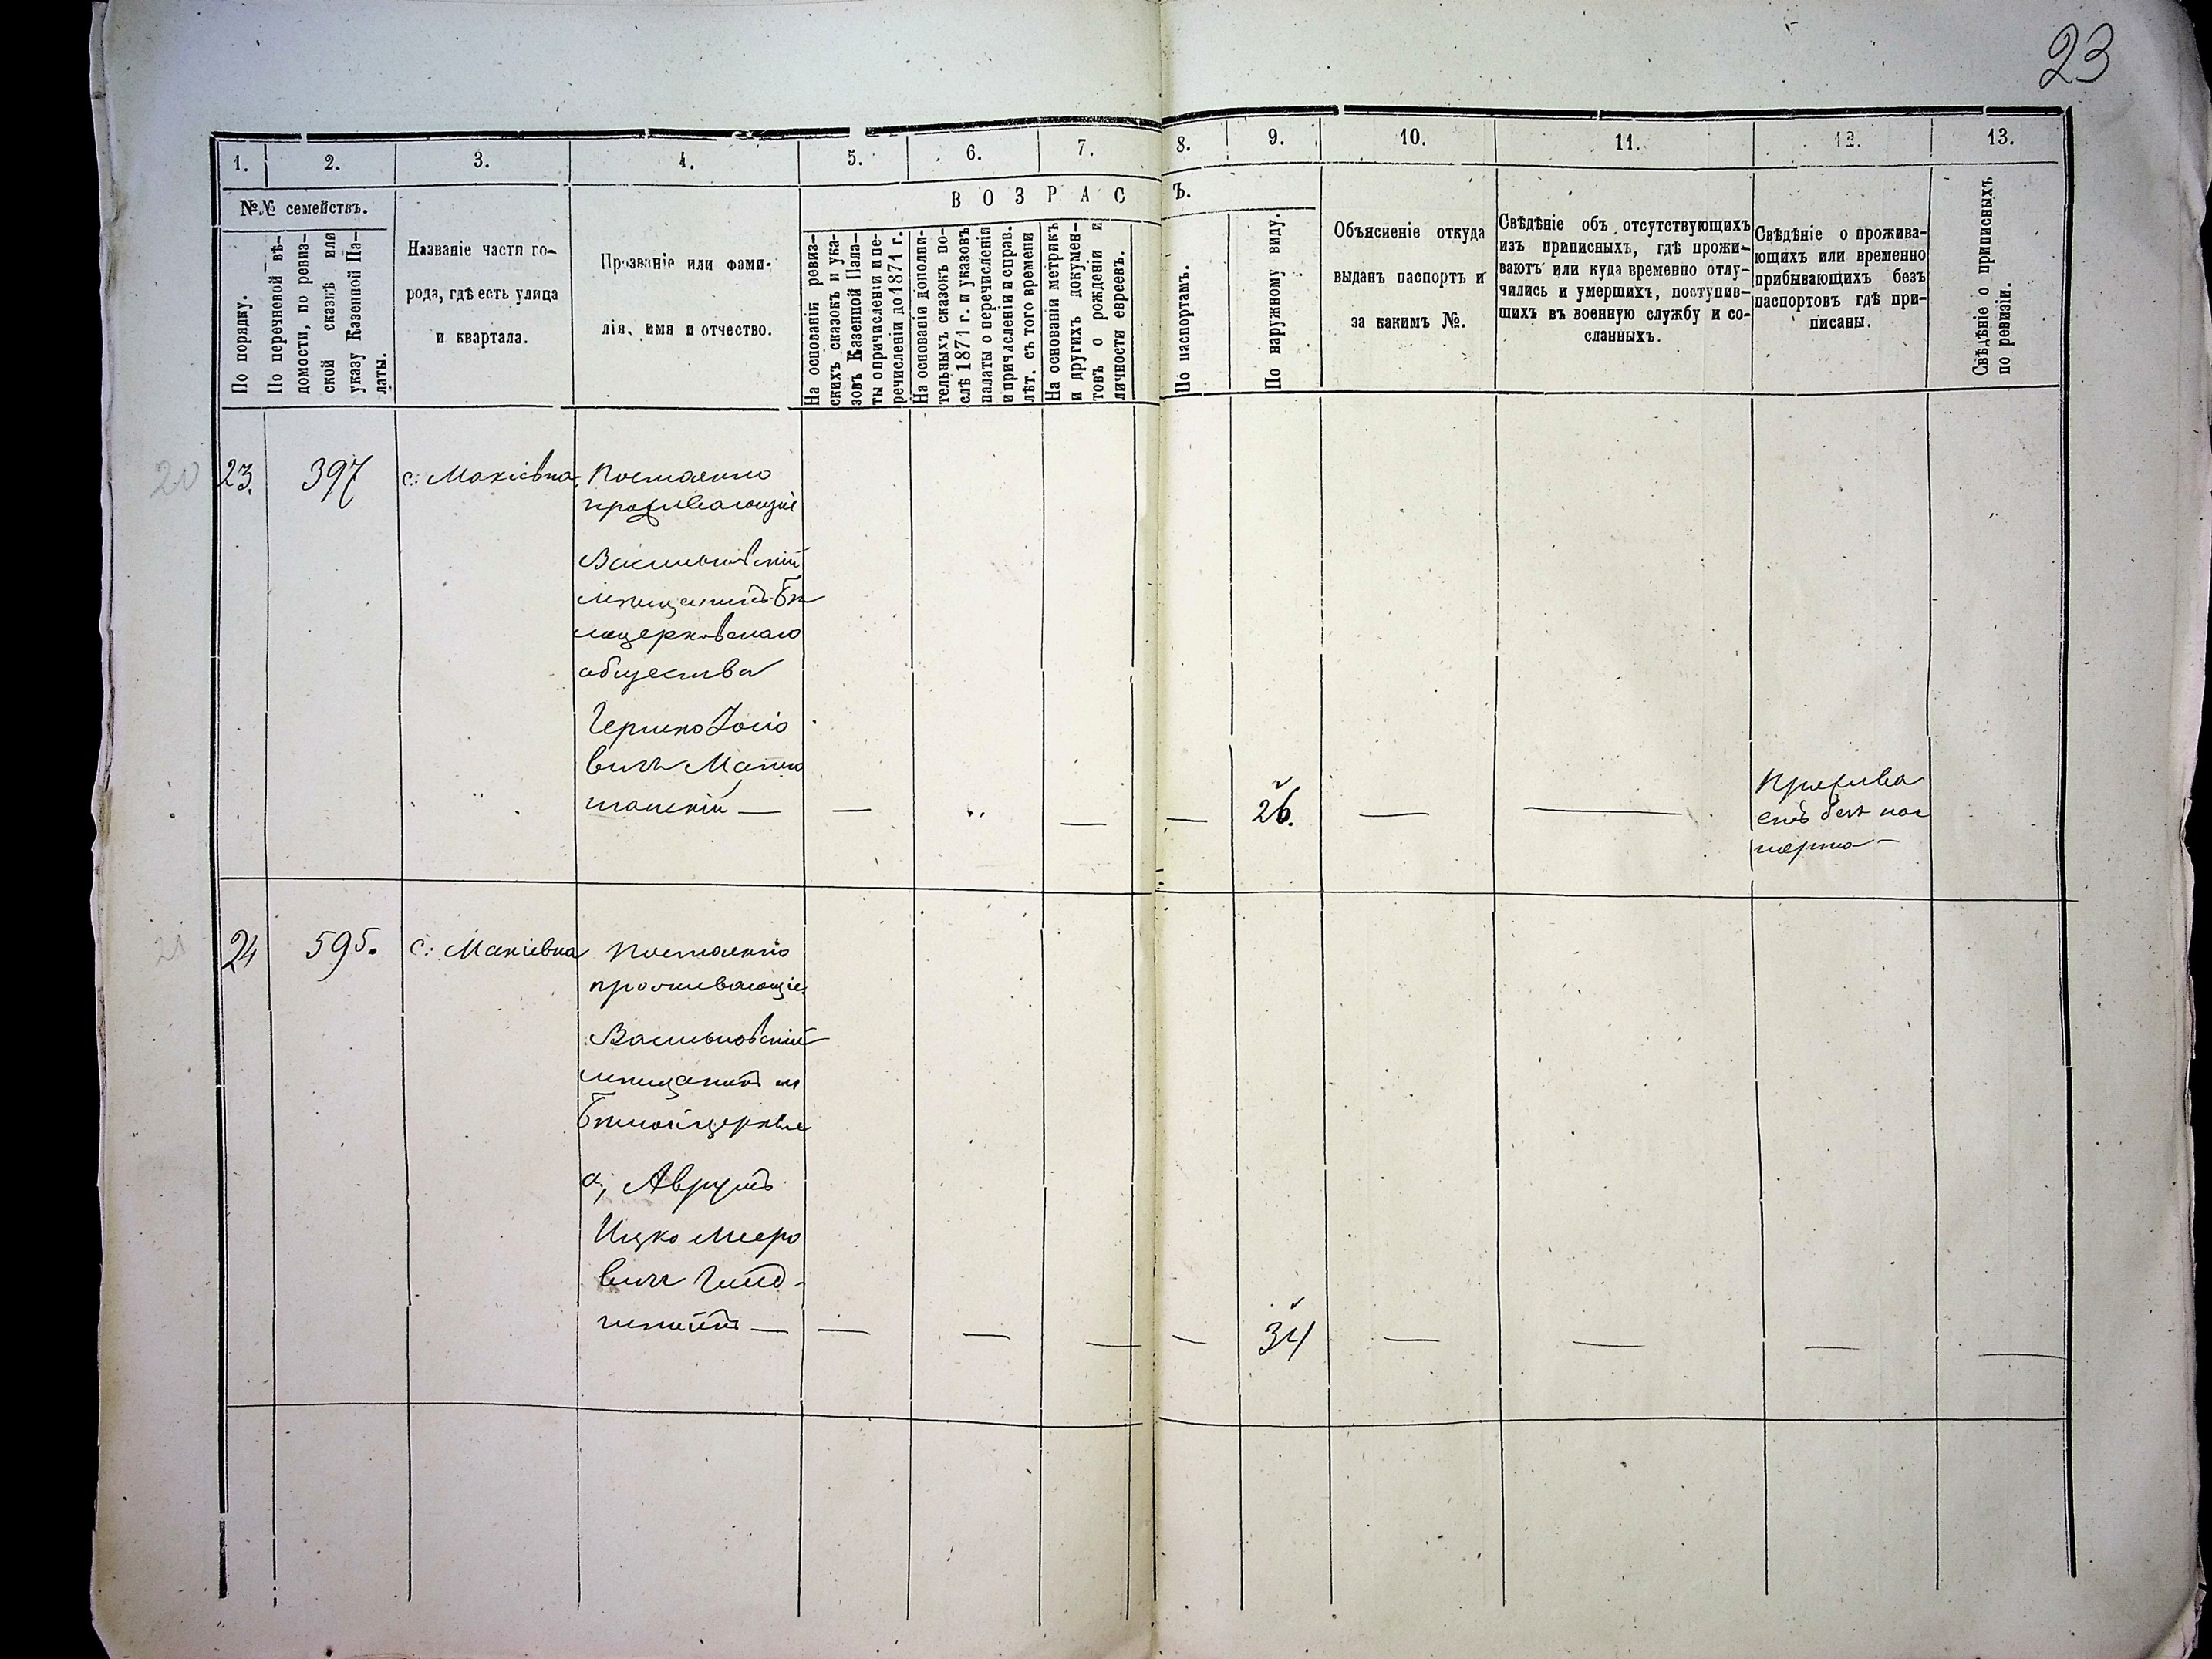 23
1. 2. 3. 4. 5. 6. 7. 8. 9. 10. 11. 12. 13.
№№ семействъ.
По порядку.
По перечневой вѣ-
домости, по ревиз-
ской сказкѣ или
указу Казенной Па-
латы.
Названіе части го-
рода, гдѣ есть улица
и квартала.
Прозваніе или фами-
лія, имя и отчество.
ВОЗРАС
Ъ.
На основаніи ревиз-
скихъ сказокъ и ука-
зовъ Казенной Пала-
ты о причисленіи и пе-
речисленіи до 1871 г.
На основаніи дополни-
тельныхъ сказокъ по-
слѣ 1871 г. и указовъ
палаты о перечисленіи
и причисленіи и справ.
лѣт. съ того времени
На основаніи метрикъ
и другихъ докумен-
товъ о рожденіи и
личности евреевъ.
По паспортамъ.
По наружному виду.
Объясненіе откуда
выданъ паспортъ и
за какимъ №.
Свѣдѣніе объ отсутствующихъ
изъ приписныхъ, гдѣ прожи-
ваютъ или куда временно отлу-
чились и умершихъ, поступив-
шихъ въ военную службу и со-
сланныхъ.
Свѣдѣніе о прожива-
ющихъ или временно
прибывающихъ безъ
паспортовъ гдѣ при-
писаны.
Свѣдѣніе о приписныхъ
по ревизіи.
20 23. 397 с: Макіевка
Постоянно
проживающіе
Васильковскій
мѣщанинъ Бѣ
лоцерковскаго
общества
Гершко Іосіо
вичъ
— — — 26. — —
Прожива
етъ безъ пас
порта —
21 24 595. с: Макіевка
Постоянно
проживающіе
Васильковскій
мѣщанинъ изъ
Бѣлойцеркви
а, Аврумъ
Ицко Мееро
вичъ
— — — — — 34 — — — —